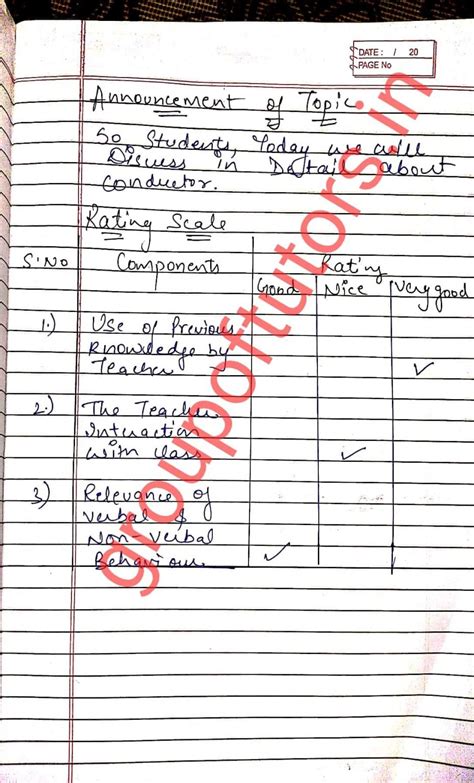 DATE: / 20
PAGE No
Announcement of Topic
So Students, Today we will
Discuss in Detail about
Conductor.
Rating Scale
S.No Components Rating
Good Nice Very good
1.) Use of Previous
Knowledge by
Teacher ✓
2.) The Teacher
Interaction
with class ✓
3.) Relevance of
Verbal &
Non-Verbal
Behaviour. ✓
groupoftutors.in